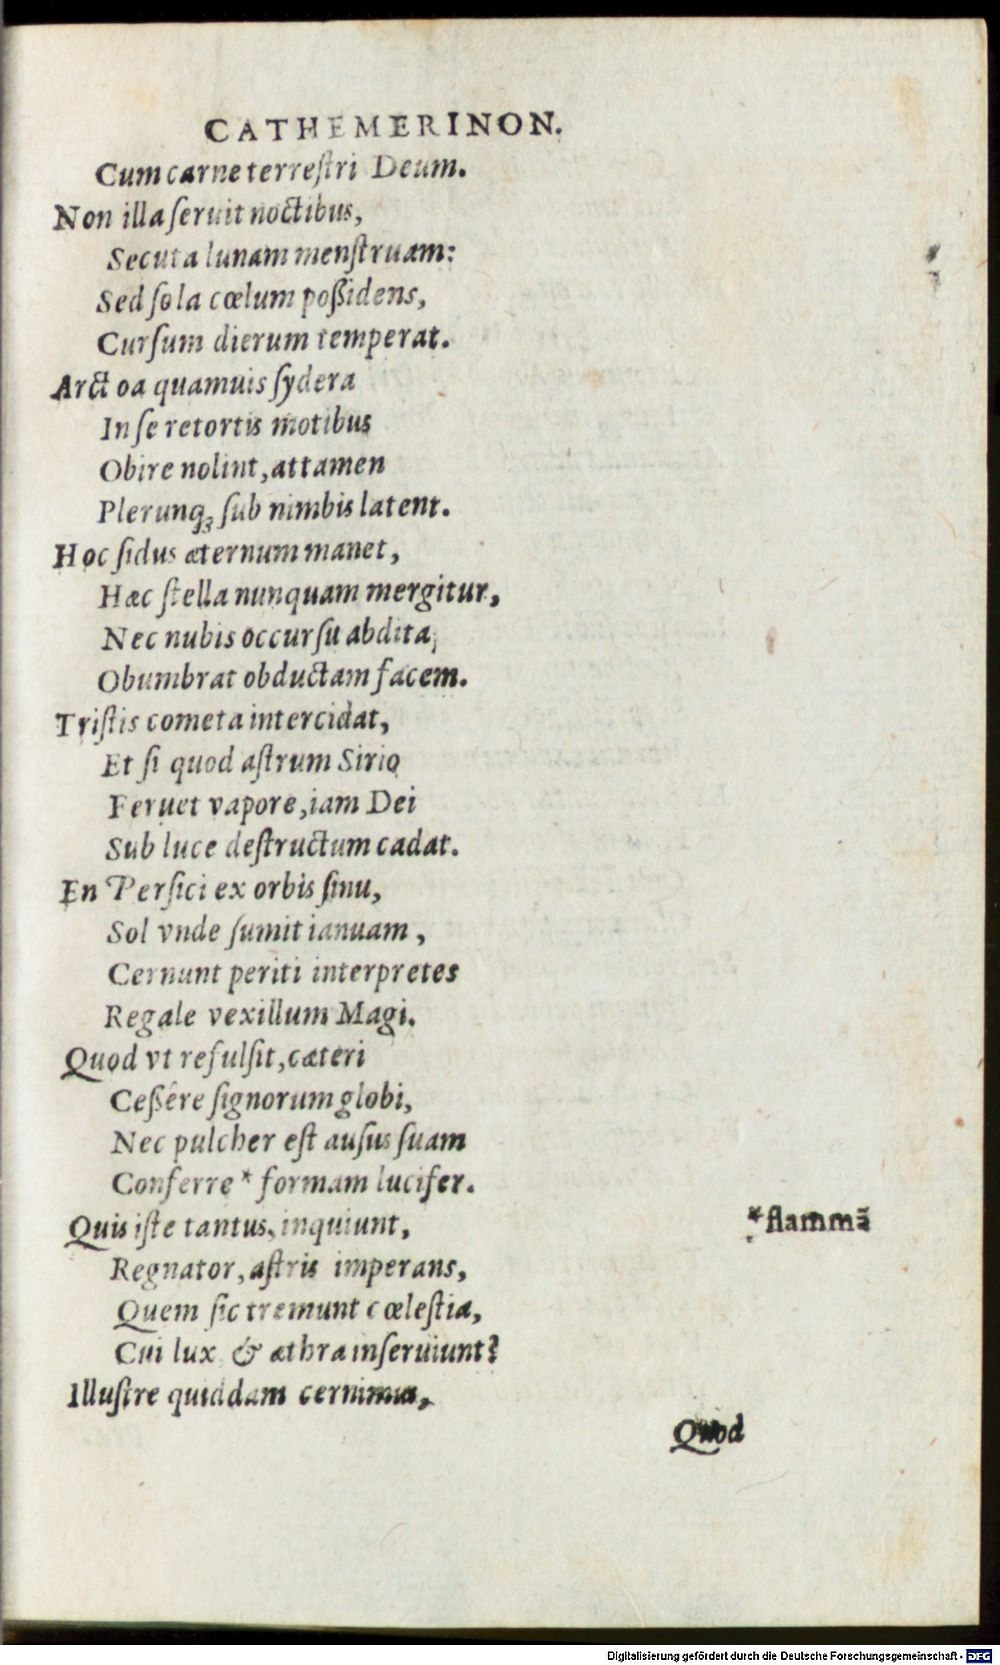 CATHEMERINON.
Cum carne terreſtri Deum.
Non illa ſeruit noctibus,
Secuta lunam menſtruam:
Sed ſola cœlum poßidens,
Curſum dierum temperat.
Arctoa quamuis ſydera
In ſe retortis motibus
Obire nolint, attamen
Plerunq; ſub nimbis latent.
Hoc ſidus æternum manet,
Hæc ſtella nunquam mergitur,
Nec nubis occurſu abdita,
Obumbrat obductam facem.
Triſtis cometa intercidat,
Et ſi quod aſtrum Sirio
Feruet vapore, iam Dei
Sub luce deſtructum cadat.
En Perſici ex orbis ſinu,
Sol vnde ſumit ianuam,
Cernunt periti interpretes
Regale vexillum Magi.
Quod vt refulſit, cæteri
Ceßére ſignorum globi,
Nec pulcher eſt auſus ſuam
Conferre * formam lucifer.
Quis iſte tantus, inquiunt,
*flammã
Regnator, aſtris imperans,
Quem ſic tremunt cœleſtia,
Cui lux & æthra inſeruiunt?
Illuſtre quiddam cernimus,
Quod
Digitalisierung gefördert durch die Deutsche Forschungsgemeinschaft - DFG